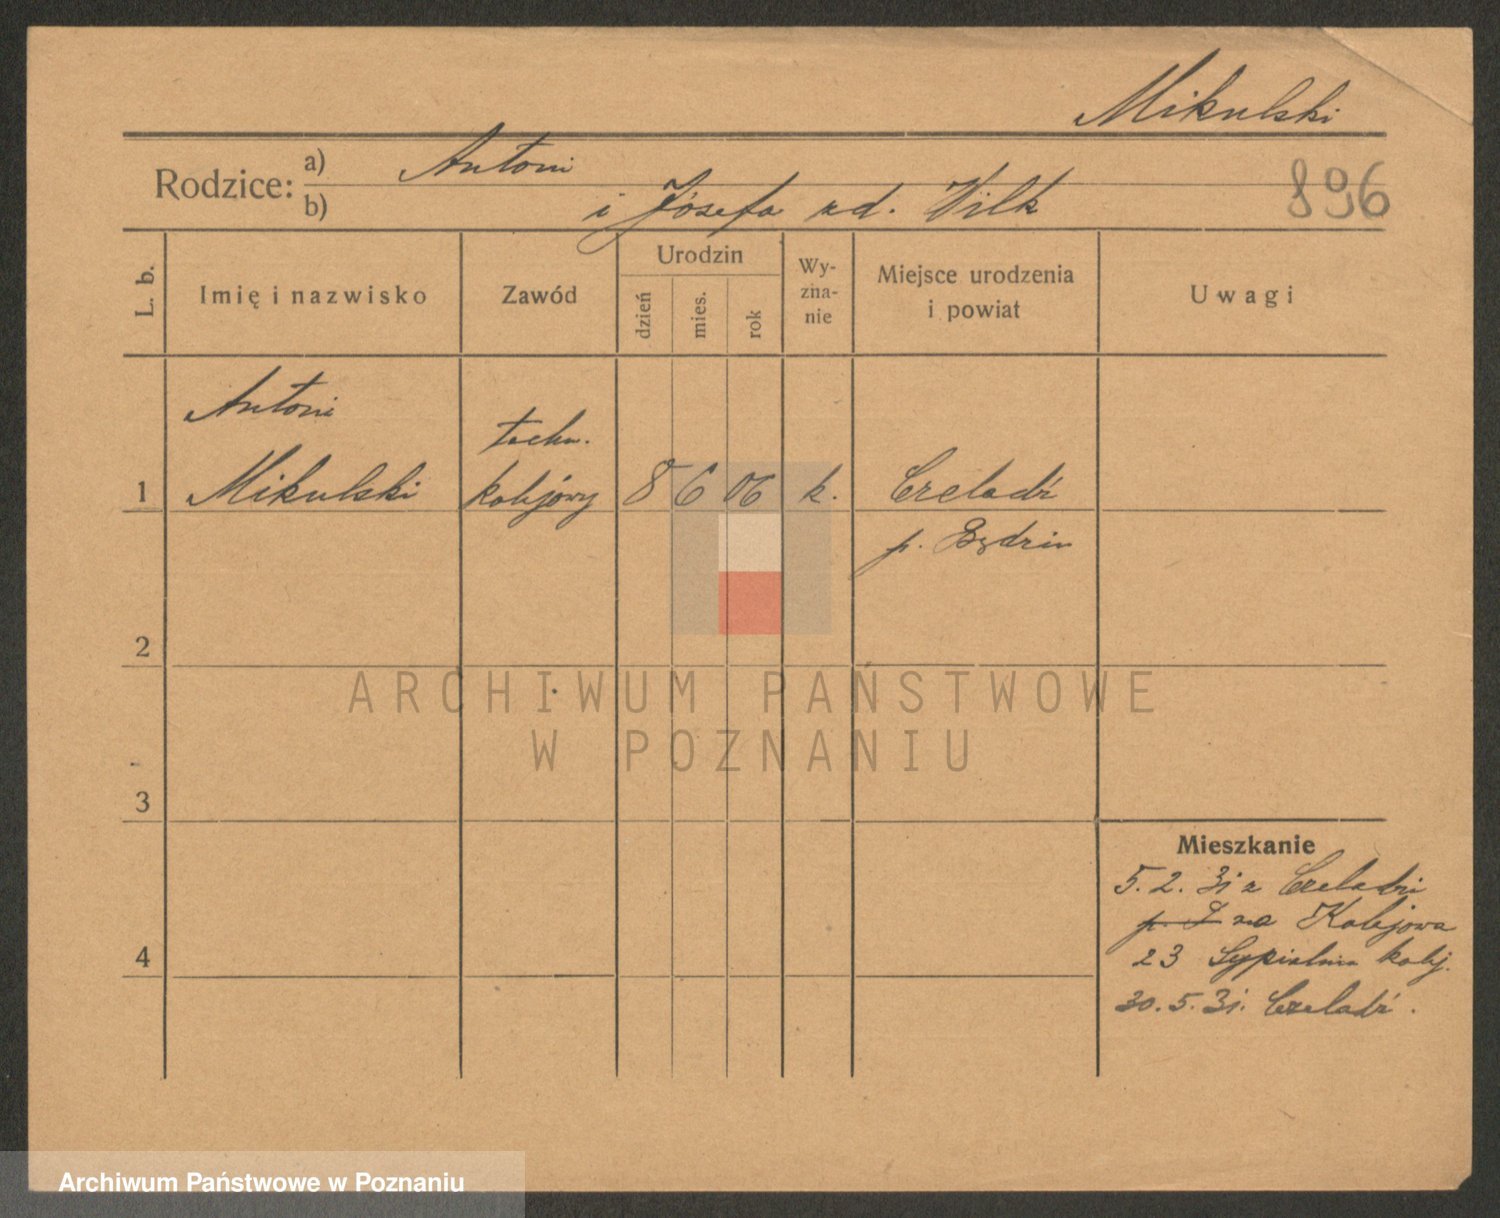 Mikulski
Rodzice: a) Antoni
b) i Józefa zd. Wilk
896
L. b.
Imię i nazwisko
Zawód
Urodzin
dzień
mies.
rok
Wy-
zna-
nie
Miejsce urodzenia
i powiat
Uwagi
Antoni
techn.
1 Mikulski kolejowy 8 6 06 k. Czeladź
p. Będzin
2
3
4
Mieszkanie
5.2.31 z Czeladzi
p. na Kolejowa
23 Sypialnia kolej.
30.5.31. Czeladź.
ARCHIWUM PAŃSTWOWE
W POZNANIU
Archiwum Państwowe w Poznaniu